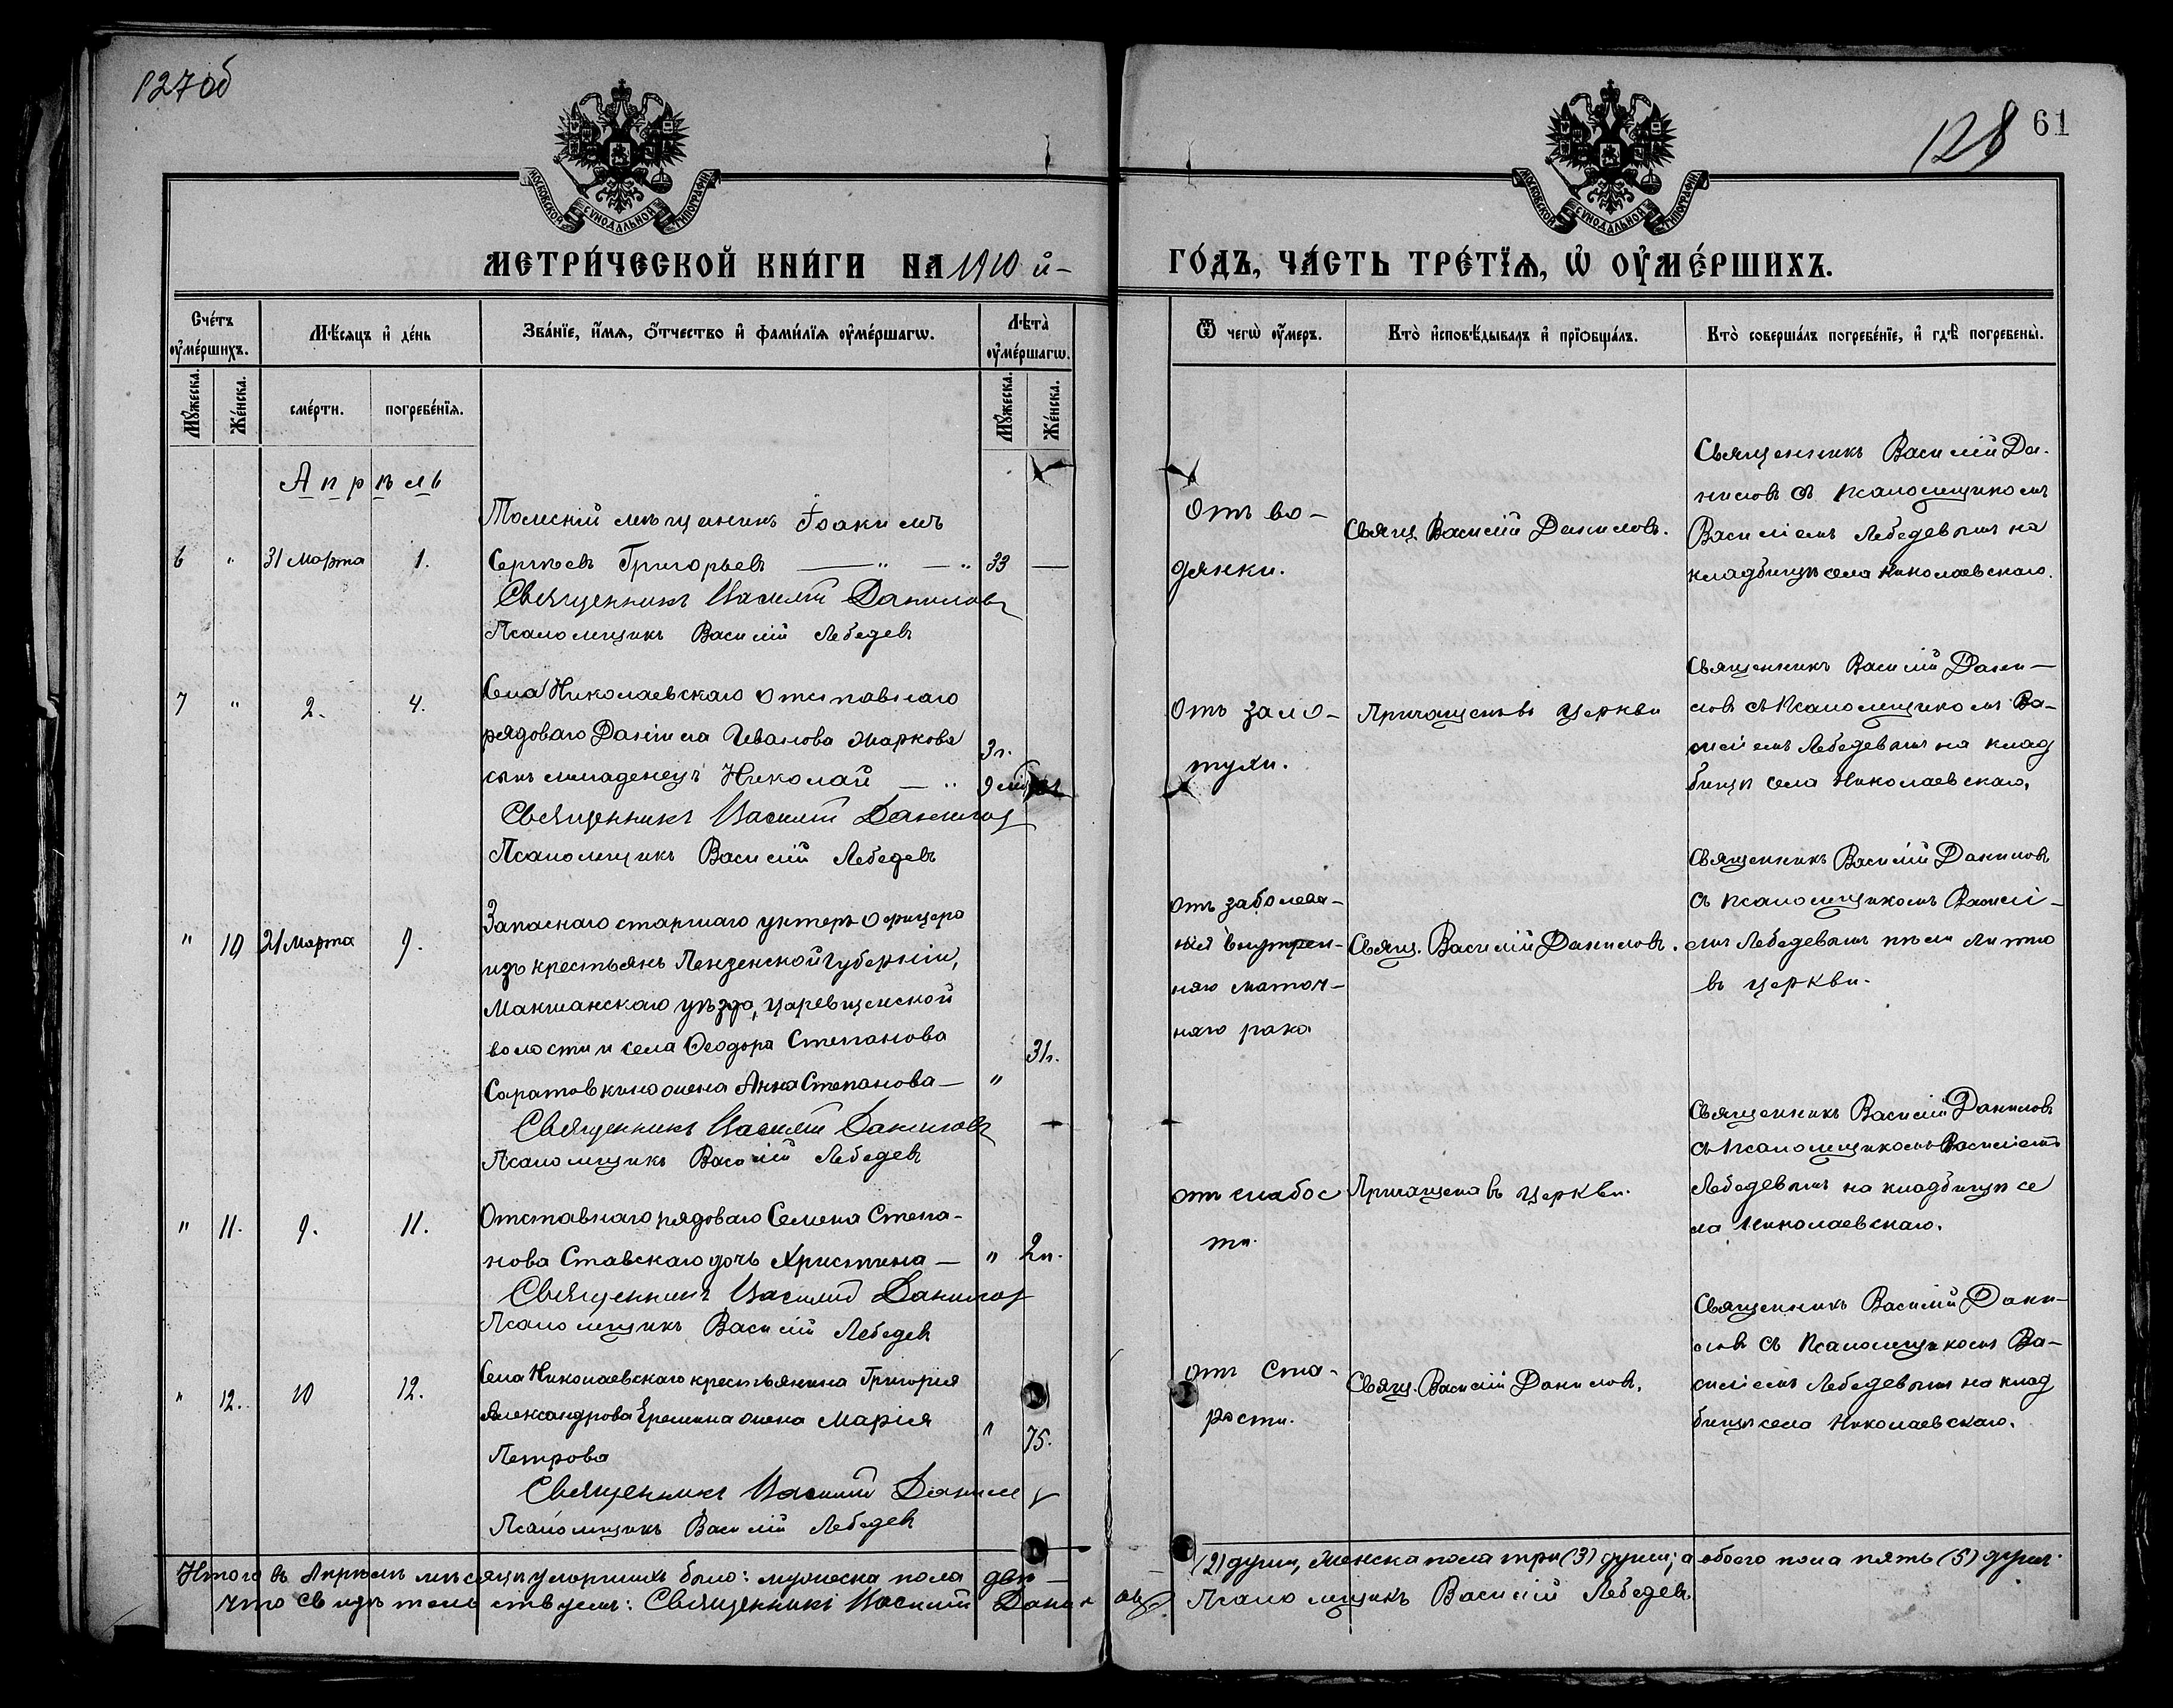 127об
128
61
МОСКОВСКОЙ СѴНОДАЛЬНОЙ ТИПОГРАФІИ
МОСКОВСКОЙ СѴНОДАЛЬНОЙ ТИПОГРАФІИ
МЕТРИ́ЧЕСКОЙ КНИ́ГИ НА 1910 й-
ГО́ДЪ, ЧА́СТЬ ТРЕ́ТЇѦ, Ѽ ОУ҆МЕ́РШИХЪ.
Сче́тъ оу҆ме́ршихъ.
Мѣ́сѧцъ и҆ де́нь
Зва́нїе, и҆́мѧ, ѻ҆́тчество и҆ фами́лїѧ оу҆ме́ршагѡ.
Лѣ́та оу҆ме́ршагѡ.
Ѿ чегѡ̀ оу҆́меръ.
Кто̀ и҆сповѣ́дывалъ и҆ прїѡбща́лъ.
Кто̀ соверша́лъ погребе́нїе, и҆ гдѣ̀ погребены̀.
Мꙋ́жеска.
Же́нска.
сме́рти.
погребе́нїѧ.
Мꙋ́жеска.
Же́нска.
Апрѣль
6 " 31 Марта 1.
Томскій мѣщанинъ Іоакимъ
Сергѣевъ Григорьевъ — " — " 33 —
Священникъ Василій Даниловъ
Псаломщикъ Василій Лебедевъ
Отъ во-
дянки.
Свящ. Василій Даниловъ.
Священникъ Василій Да-
ниловъ съ псаломщикомъ
Василіемъ Лебедевымъ на
кладбищѣ села Николаевскаго.
7 " 2. 4.
Села Николаевскаго отставнаго
рядоваго Даніила Иванова Маркова
сынъ младенецъ Николай — "
3 г.
9 м.
Священникъ Василій Данилов
Псаломщикъ Василій Лебедевъ
Отъ золо-
тухи.
Причащенъ въ церкви
Священникъ Василій Дани-
ловъ съ Псаломщикомъ Ва-
силіемъ Лебедевымъ на клад
бищѣ села Николаевскаго.
" 10 21 Марта 9.
Запаснаго старшаго унтеръ офицера
изъ крестьянъ Пензенской губерніи,
Мокшанскаго уѣзда, Царевщенской
волости и села Ѳеодора Степанова
Саратовкина жена Анна Степанова — " 31 г.
Священникъ Василій Даниловъ
Псаломщикъ Василій Лебедевъ
отъ заболева-
нія внутрен-
няго маточ-
наго рака
Свящ. Василій Даниловъ.
Священникъ Василій Даниловъ
съ псаломщикомъ Василі-
емъ Лебедевымъ пѣли литію
въ церкви.
" 11. 9. 11.
Отставнаго рядоваго Семена Степа-
нова Ставскаго дочь Христина — " 2 н.
Священникъ Василій Данилов
Псаломщикъ Василій Лебедевъ
отъ слабос
ти.
Причащена въ церкви.
Священникъ Василій Даниловъ
съ Псаломщикомъ Василіемъ
Лебедевымъ на кладбищѣ се
ла Николаевскаго.
" 12. 10 12.
Села Николаевскаго крестьянина Григорія
Александрова Еремина жена Марія " 75.
Петрова
Священникъ Василій Данилов
Псаломщикъ Василій Лебедевъ
отъ ста-
рости.
Свящ. Василій Даниловъ.
Священникъ Василій Дани-
ловъ съ Псаломщикомъ Ва-
силіемъ Лебедевымъ на клад
бищѣ села Николаевскаго.
Итого въ Апрѣлѣ мѣсяцѣ умершихъ было: мужеска пола двѣ — (2) души, женска пола три (3) души; а обоего пола пять (5) душъ.
Что свидѣтельствуемъ: Священникъ Василій Даниловъ. Псаломщикъ Василій Лебедевъ